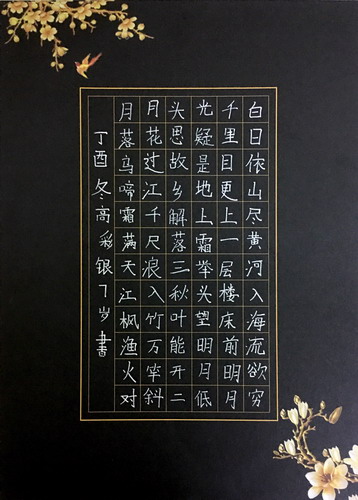 白日依山尽黄河入海流欲穷
千里目更上一层楼床前明月
光疑是地上霜举头望明月低
头思故乡解落三秋叶能开二
月花过江千尺浪入竹万竿斜
月落乌啼霜满天江枫渔火对
丁酉冬高彩银7岁書